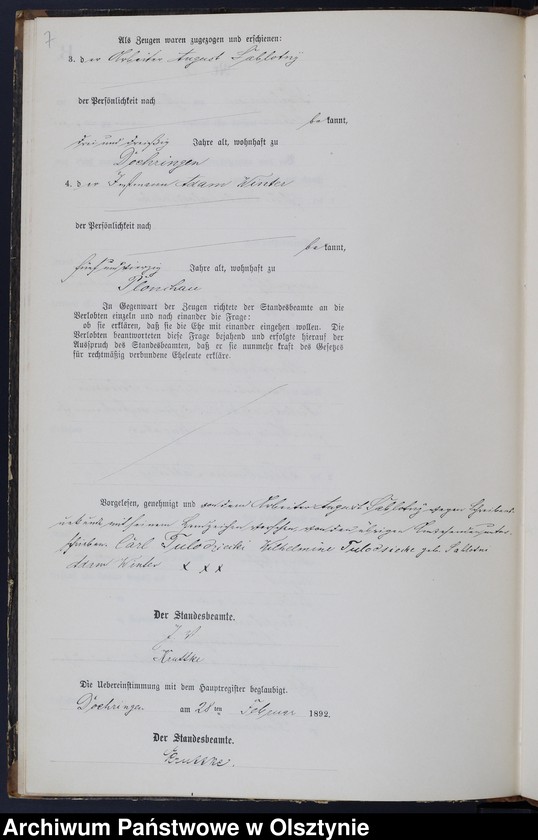 7
Als Zeugen waren zugezogen und erschienen:
3. der Arbeiter August Sablotny
der Persönlichkeit nach
bekannt,
drei und dreißig Jahre alt, wohnhaft zu
Doehringen
4. der Instmann Adam Winter
der Persönlichkeit nach
bekannt,
fünf und vierzig Jahre alt, wohnhaft zu
Plonchau
In Gegenwart der Zeugen richtete der Standesbeamte an die
Verlobten einzeln und nach einander die Frage:
ob sie erklären, daß sie die Ehe mit einander eingehen wollen. Die
Verlobten beantworteten diese Frage bejahend und erfolgte hierauf der
Ausspruch des Standesbeamten, daß er sie nunmehr kraft des Gesetzes
für rechtmäßig verbundene Eheleute erkläre.
Vorgelesen, genehmigt und von dem Arbeiter August Sablotny wegen Schreibens
unkunde mit seinem Handzeichen versehen, von den übrigen unter-
schrieben. Carl Tulodziecki Wilhelmine geb. Sablotny
Adam Winter x x x
Der Standesbeamte.
J V
Kruttke
Die Uebereinstimmung mit dem Hauptregister beglaubigt.
Doehringen am 28 ten Februar 1892.
Der Standesbeamte.
Kruttke.
Archiwum Państwowe w Olsztynie